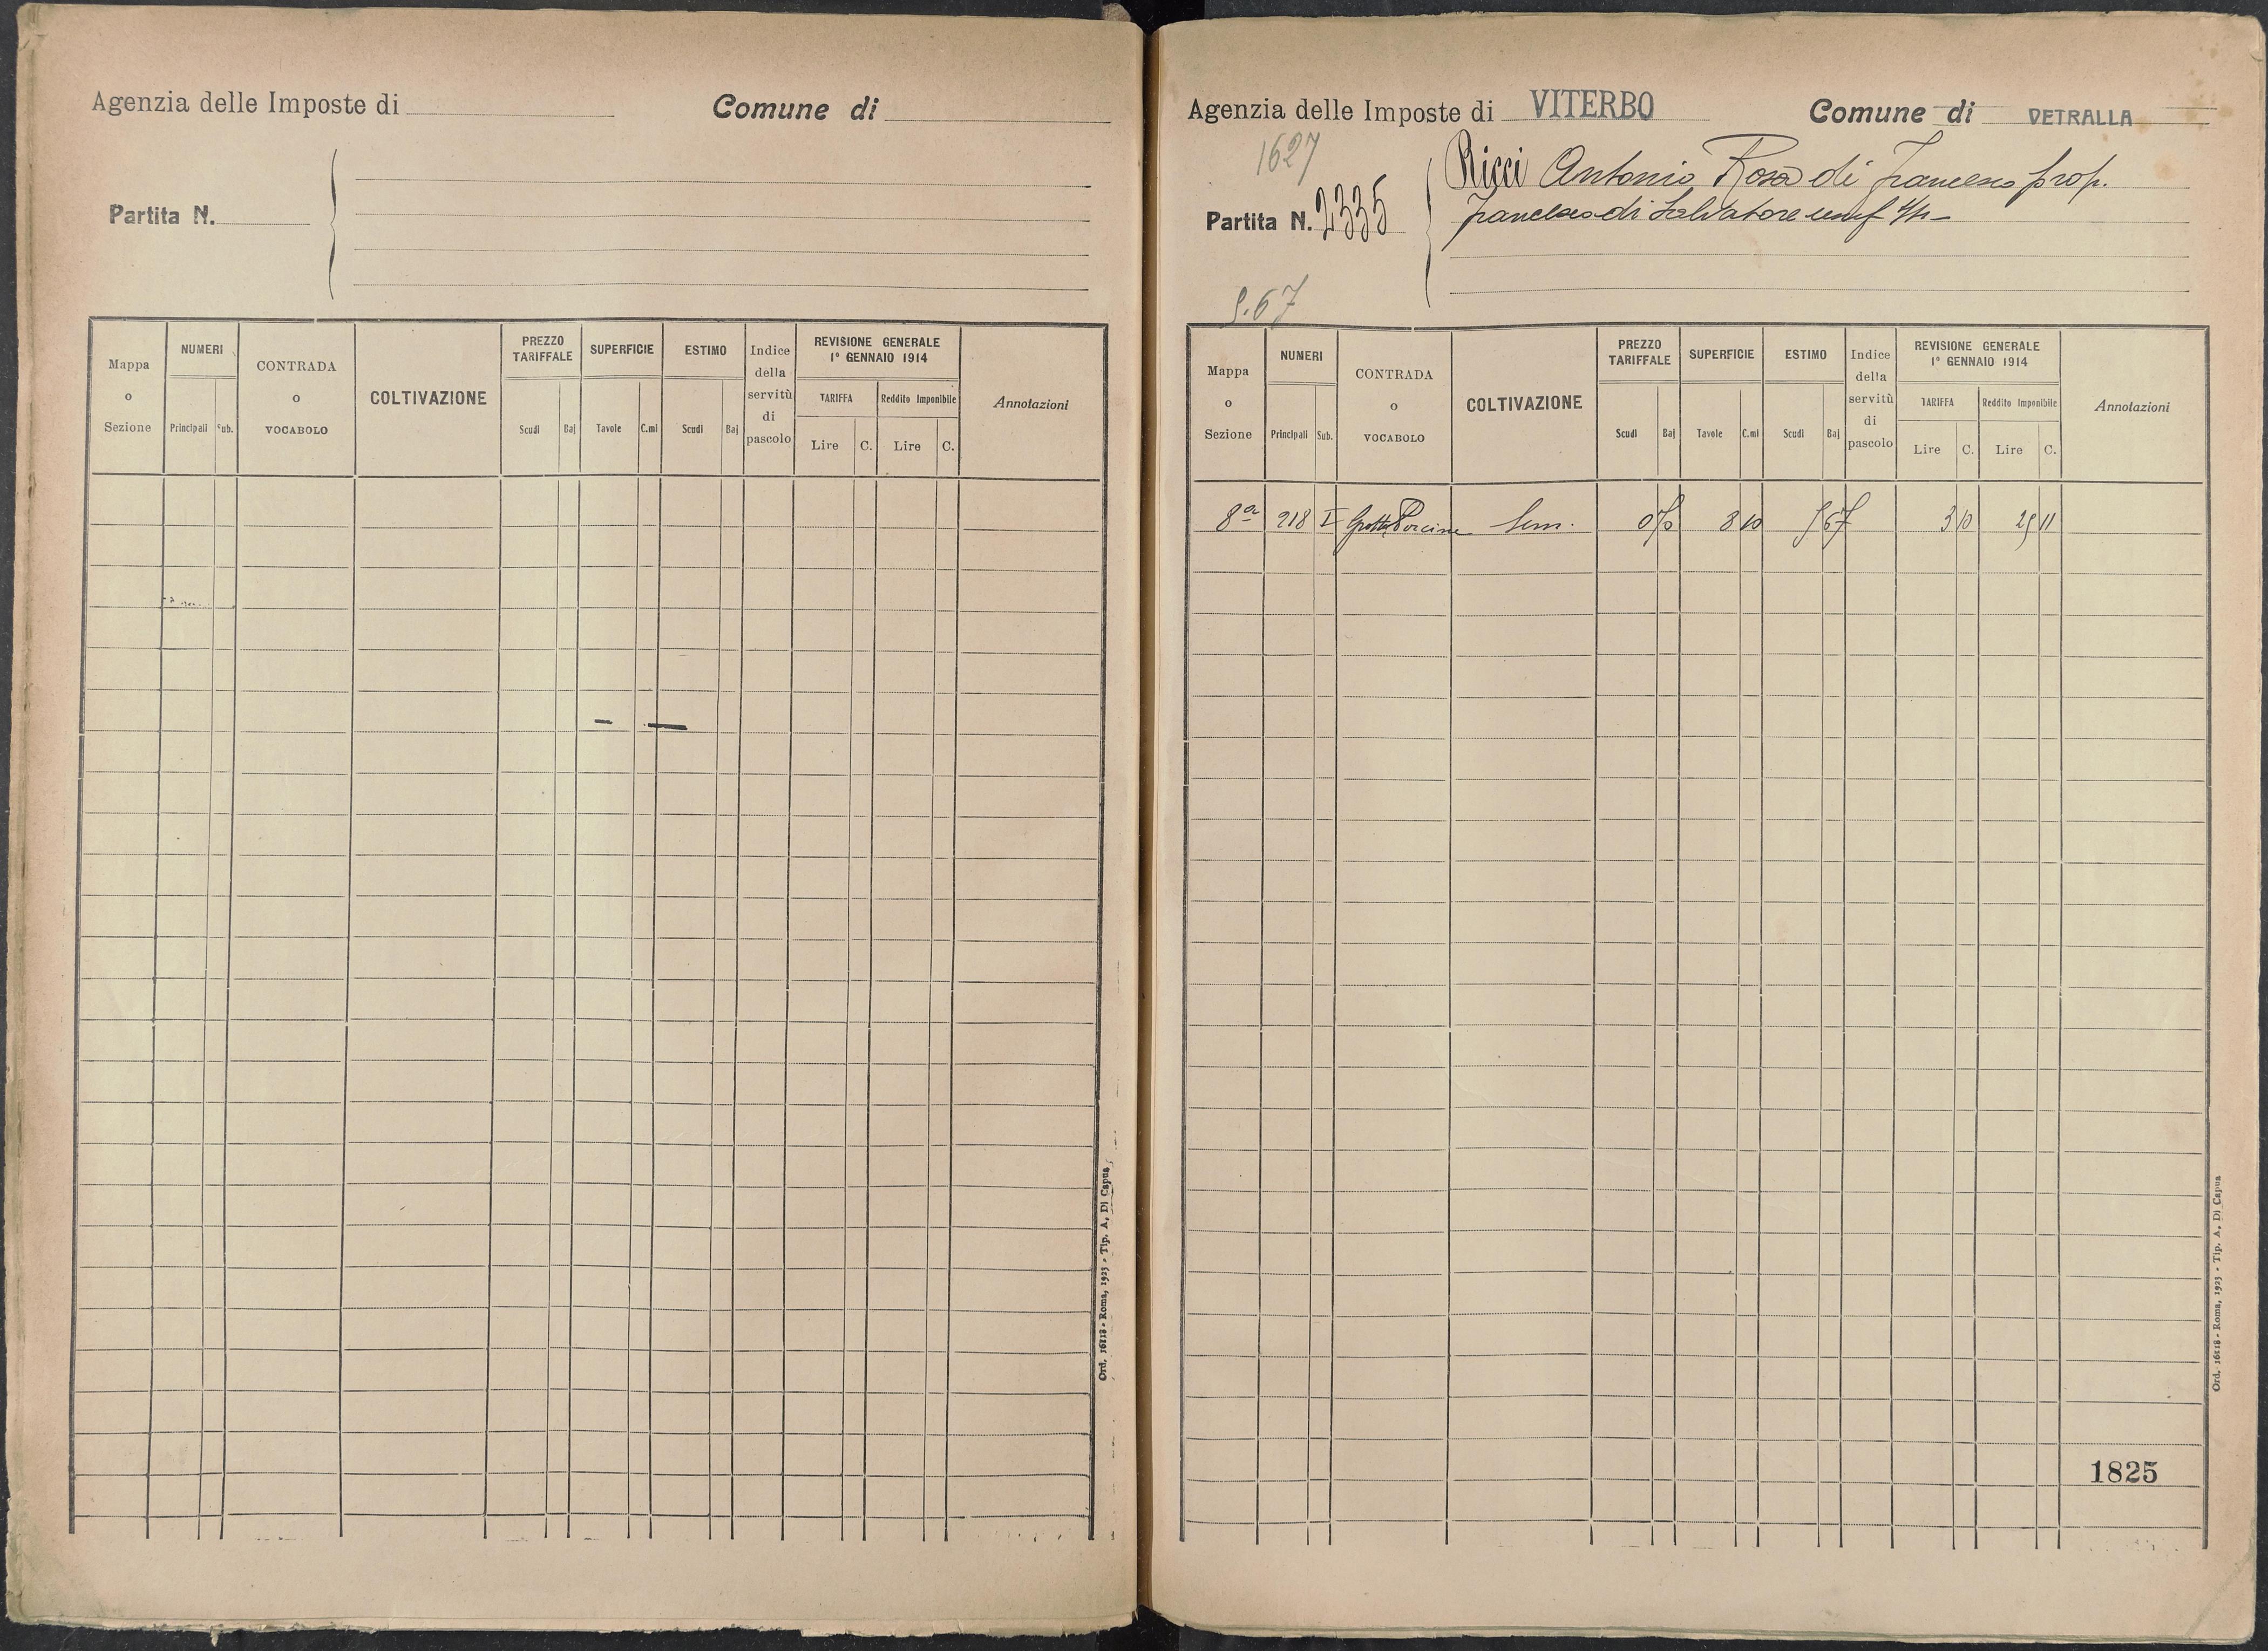 Agenzia delle Imposte di
Comune di
Partita N.
Mappa o Sezione
NUMERI
Principali Sub.
CONTRADA o VOCABOLO
COLTIVAZIONE
PREZZO TARIFFALE
Scudi Baj
SUPERFICIE
Tavole C.mi
ESTIMO
Scudi Baj
Indice della servitù di pascolo
REVISIONE GENERALE
1° GENNAIO 1914
TARIFFA
Lire C.
Reddito Imponibile
Lire C.
Annotazioni
Ord. 16118 - Roma, 1923 - Tip. A. Di Capua
Agenzia delle Imposte di VITERBO
Comune di VETRALLA
1627
Partita N. 2335
Ricci Antonio, Rosa di Francesco prop.
Francesco di Salvatore usuf
5.67
Mappa o Sezione
NUMERI
Principali Sub.
CONTRADA o VOCABOLO
COLTIVAZIONE
PREZZO TARIFFALE
Scudi Baj
SUPERFICIE
Tavole C.mi
ESTIMO
Scudi Baj
Indice della servitù di pascolo
REVISIONE GENERALE
1° GENNAIO 1914
TARIFFA
Lire C.
Reddito Imponibile
Lire C.
Annotazioni
8a 218 I Grotta Porcina Sem. 0 70 8 10 5 67 3 10 25 11
1825
Ord. 16118 - Roma, 1923 - Tip. A. Di Capua